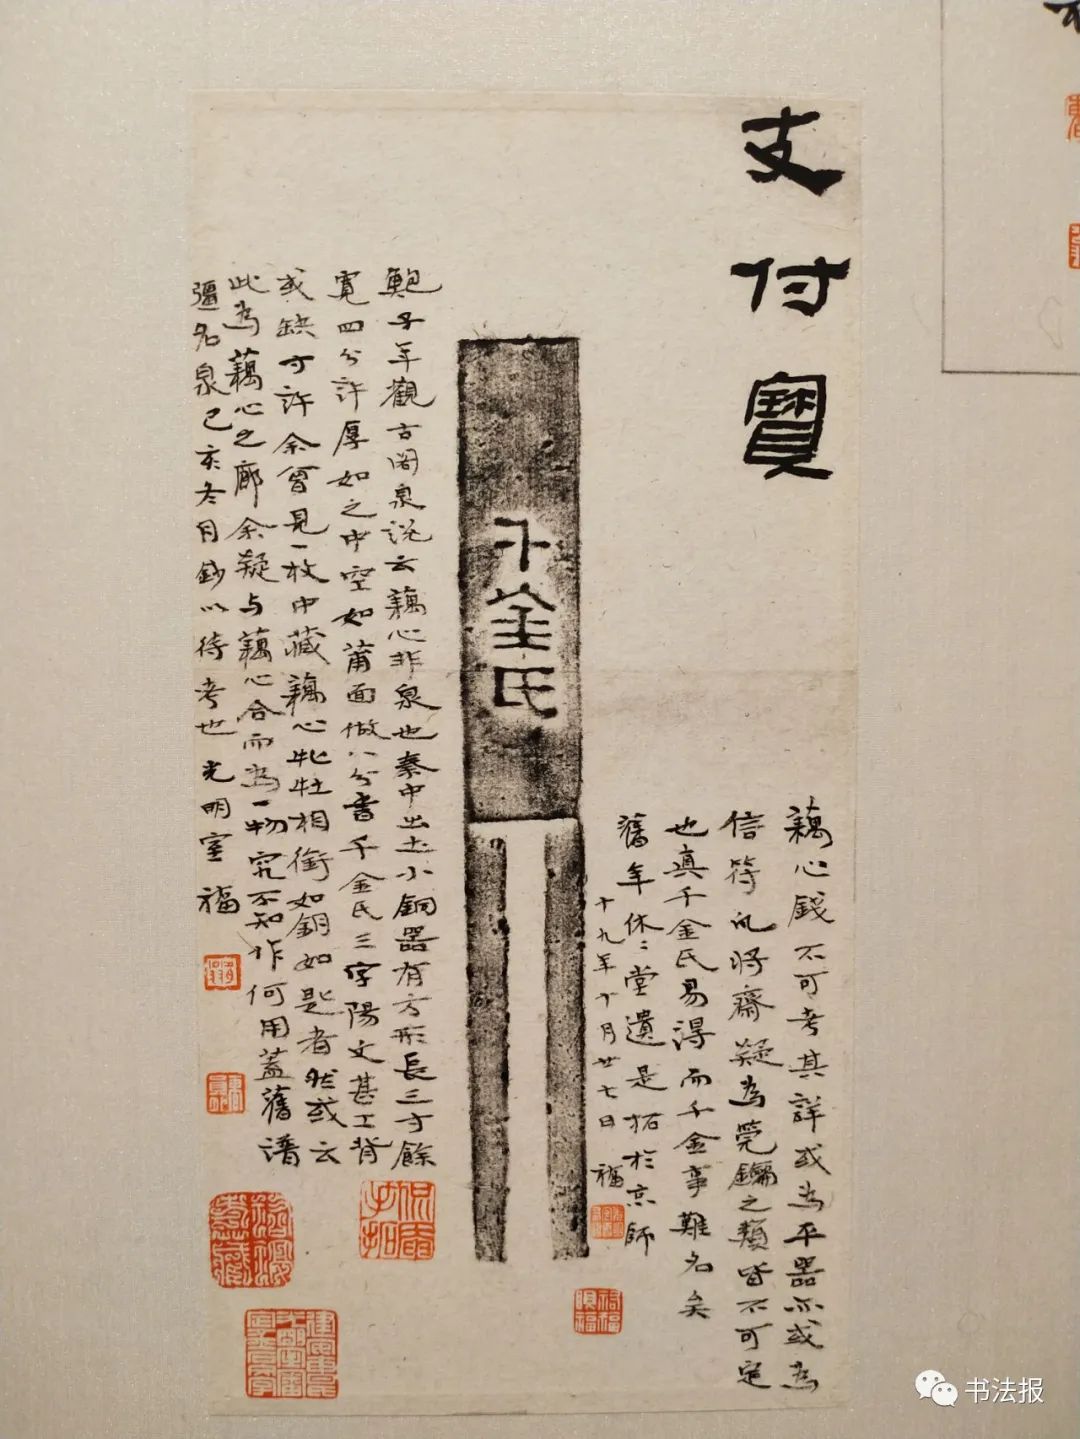 支付寶
藕心錢不可考其詳或為平器亦或為
信符况將齋疑為筦鑰之類皆不可定
也真千金氏易得而千金事難名矣
舊年休〻堂遺是拓於京師
十九年十月廿七日 福
千金氏
鮑子年觀古閣泉說云藕心非泉也秦中出土小銅器有方形長三寸餘
寬四分許厚如之中空如莆面做八分書千金氏三字陽文甚工背
或缺寸許余曾見一枚中藏藕心牝牡相銜如鑰如匙者然或云
此為藕心之廓余疑与藕心合而為一物究不知作何用蓋舊譜
彊名泉己亥冬月鈔以待考也光明室 福
书法报